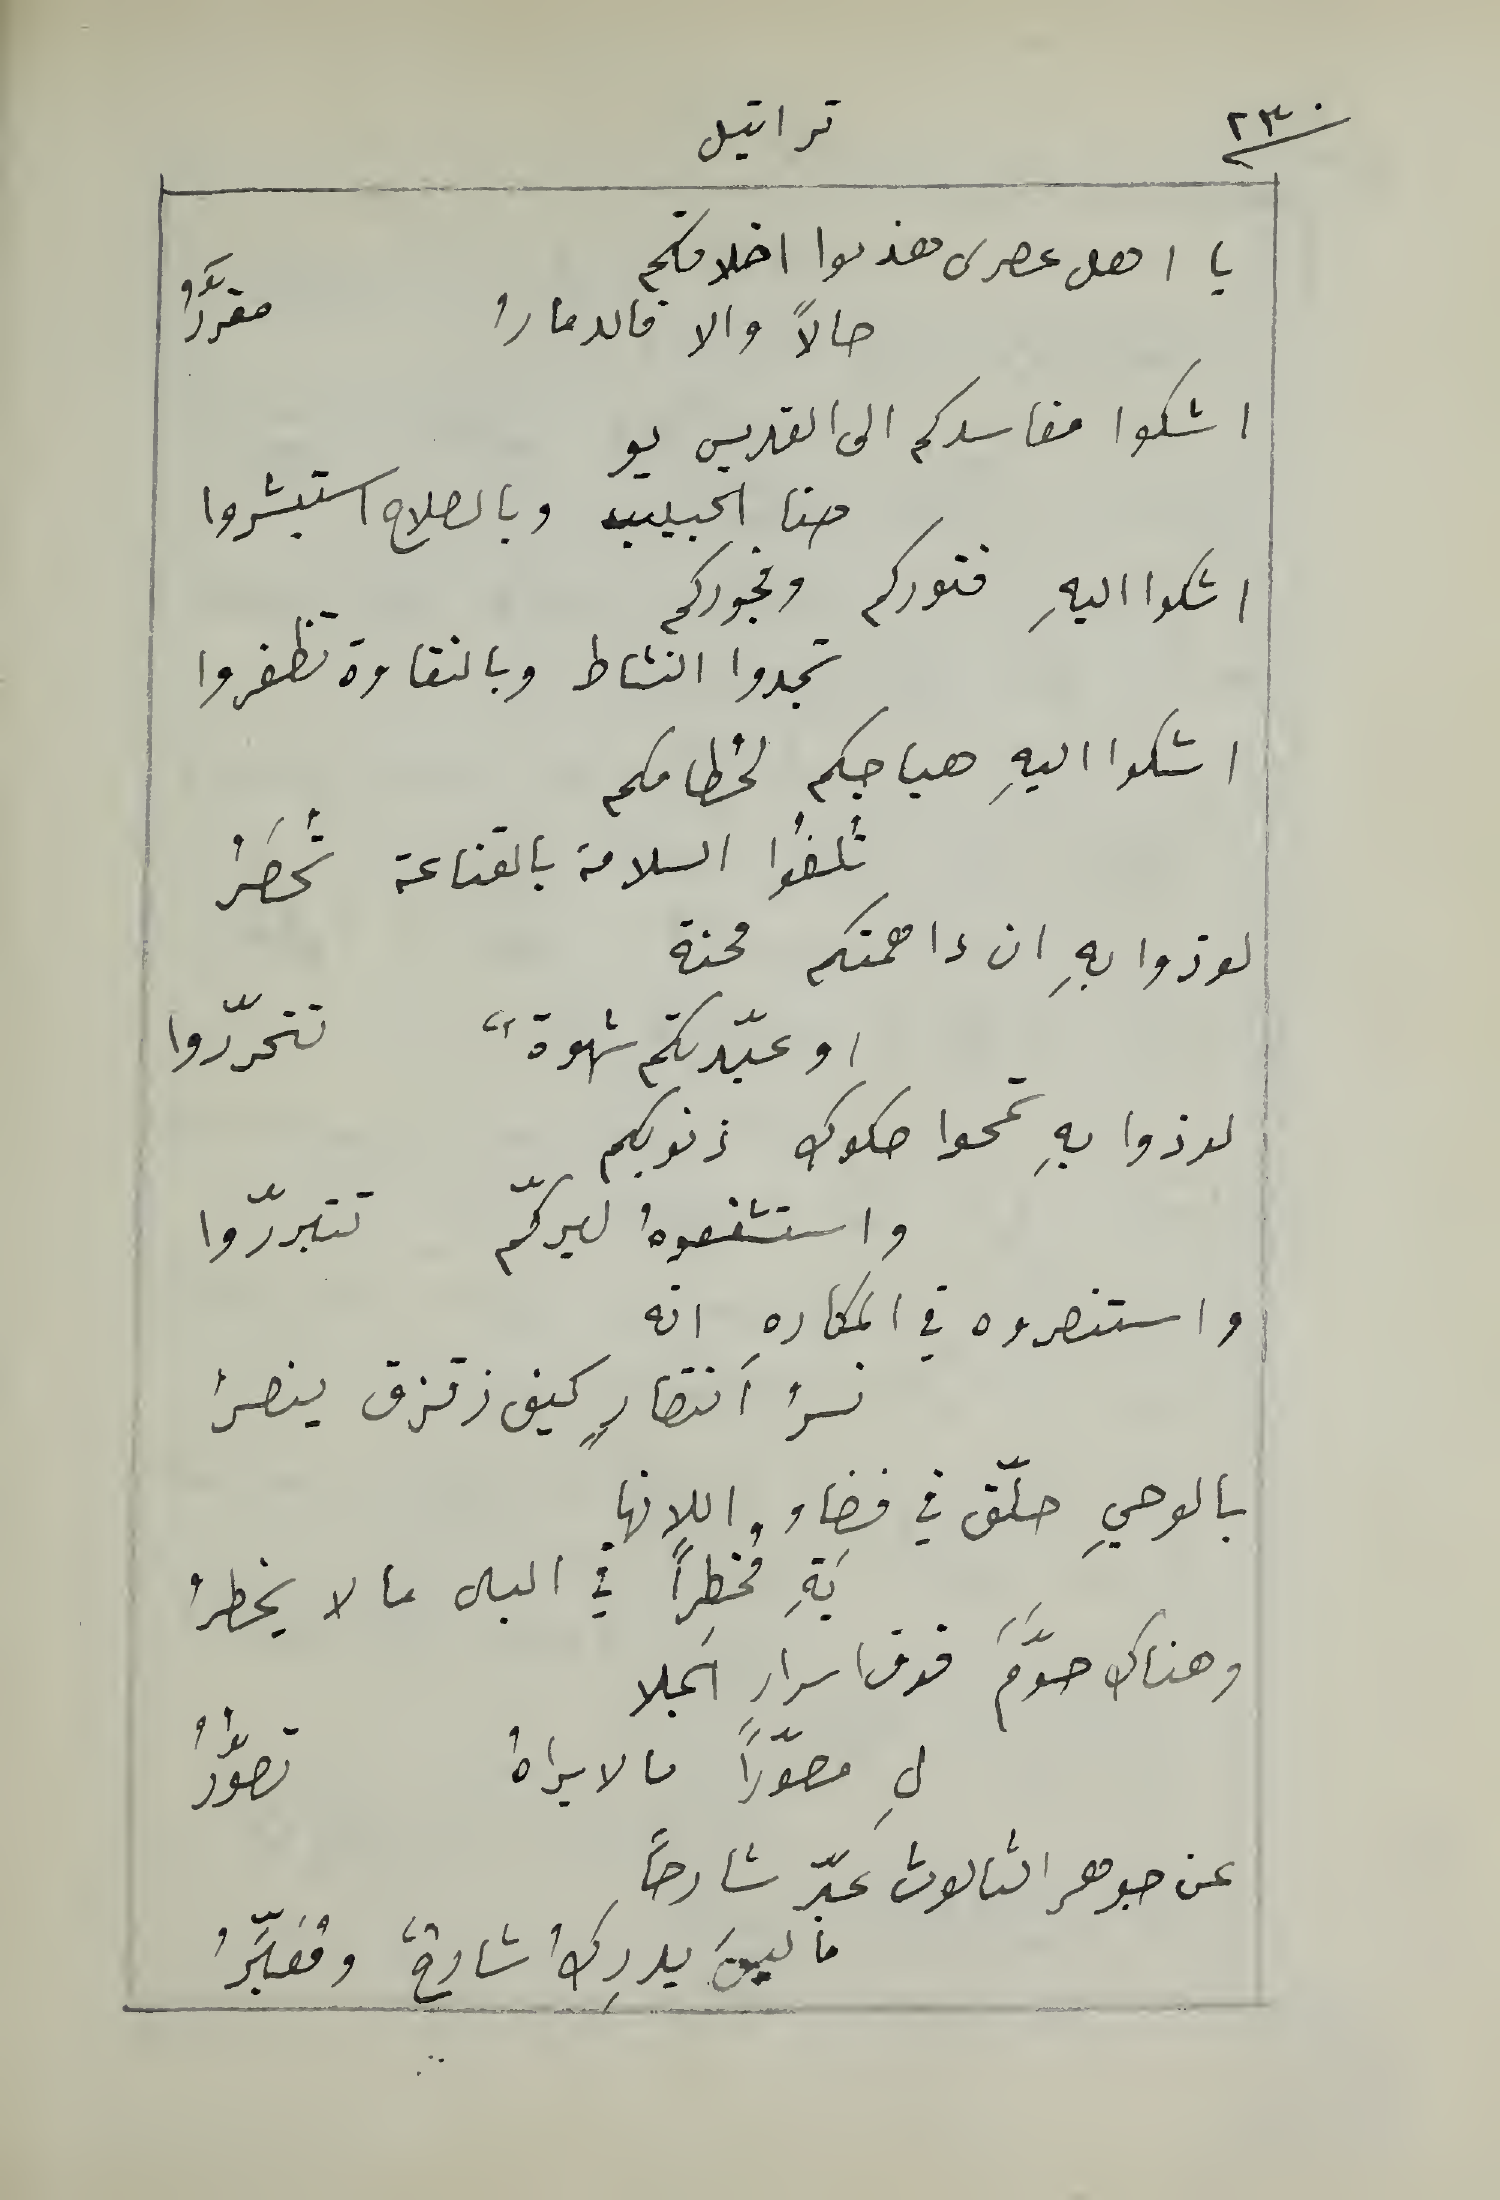 ٢٣٠
تراتيل
يا اهل عصرى هذبوا اخلاقكم
حالاً والا فالدمارُ مقرَّرُ
اشكوا مفاسدكم الى القديس يو
حنا الحبيب وبالصلاح استبشروا
اشكوا اليهِ فتوركم وفجوركم
تجدوا النشاط وبالنقاوة تظفروا
اشكوا اليهِ هياجكم لحُطامكم
تُلفُوا السلامة بالقناعة تُحصَرُ
لوذوا بهِ ان داهمتكم محنة
او عبّدتكم شهوةٌ تتحرّروا
لوذوا بهِ تمحوا صكوك ذنوبكم
واستشفعوهُ لبركّم تتبررّوا
واستنصروه في المكارهِ انه
نسرُ انتصارٍ كيف زقزق ينصرُ
بالوحيِ حلّق في فضاءِ اللانها
يَةِ مُخطِراً في البال ما لا يخطرُ
وهناك حوَّمَ فوق اسرارِ الجلا
لِ مصوّراً ما لا يراهُ تصوُّرُ
عن جوهر الثالوث عبّر شارحاً
ما ليسَ يدركُ شارحٌ ومُعَبِّرُ